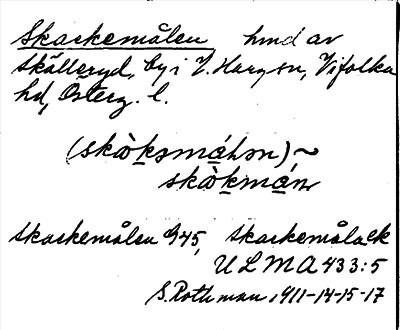 Skackemålen hmd av
Skälleryd, by i V. Harg sn, Vifolka
hd, Österg. l.
(skàkəmáłən) ~
skàkmán
Skackemålen G45, Skackemåla ek
ULMA 433:5
S. Rothman, 1911-14-15-17